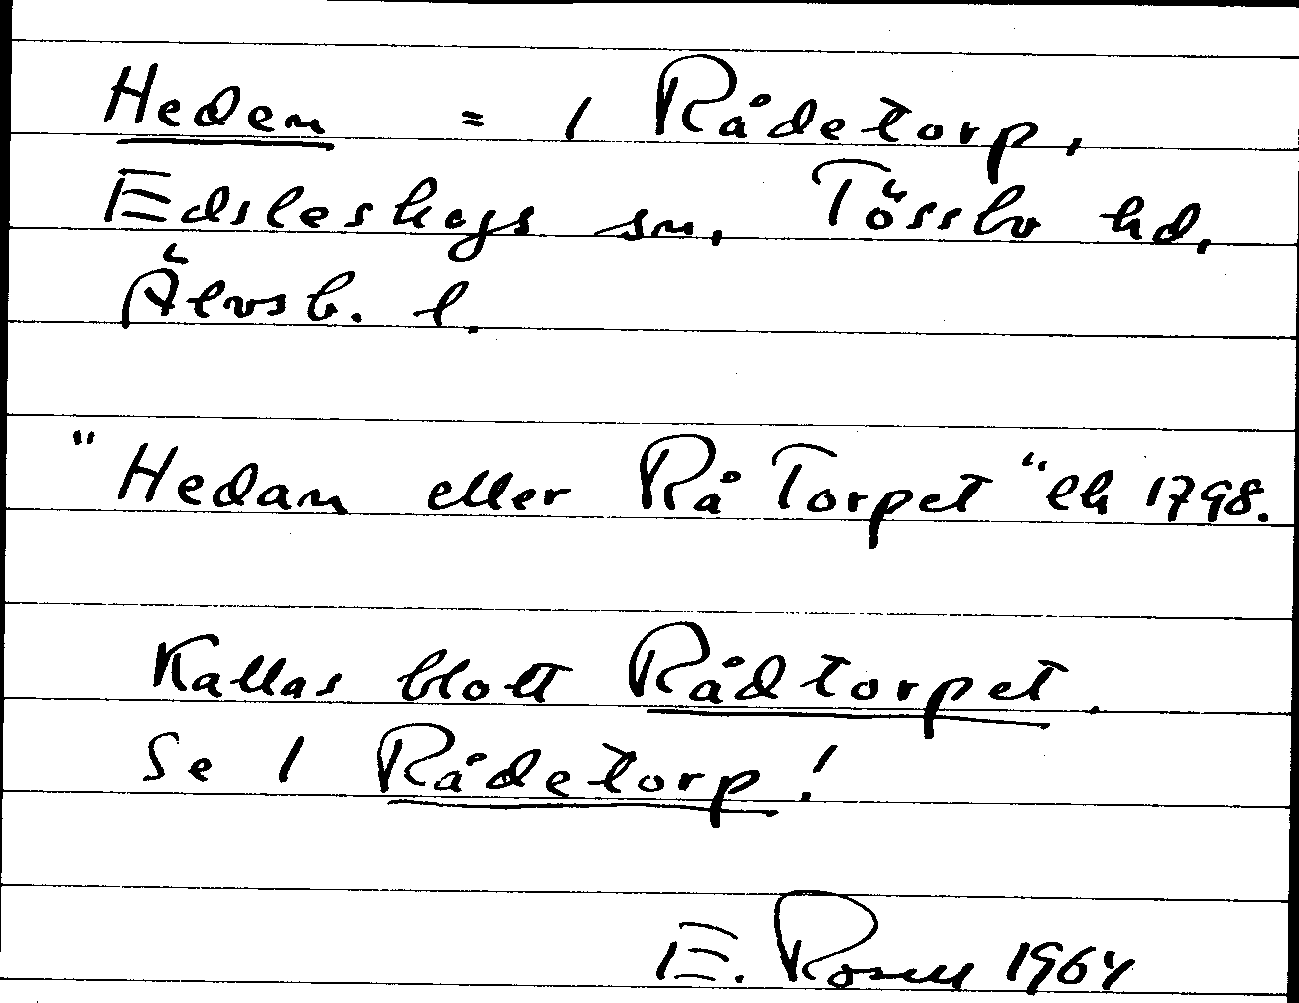 Heden = 1 Rådetorp,
Edsleskogs sn, Tössbo hd,
Älvsb. l.
"Hedan eller Rå Torpet" ek 1798.
Kallas blott Rådtorpet.
Se 1 Rådetorp!
E. Rosell 1964